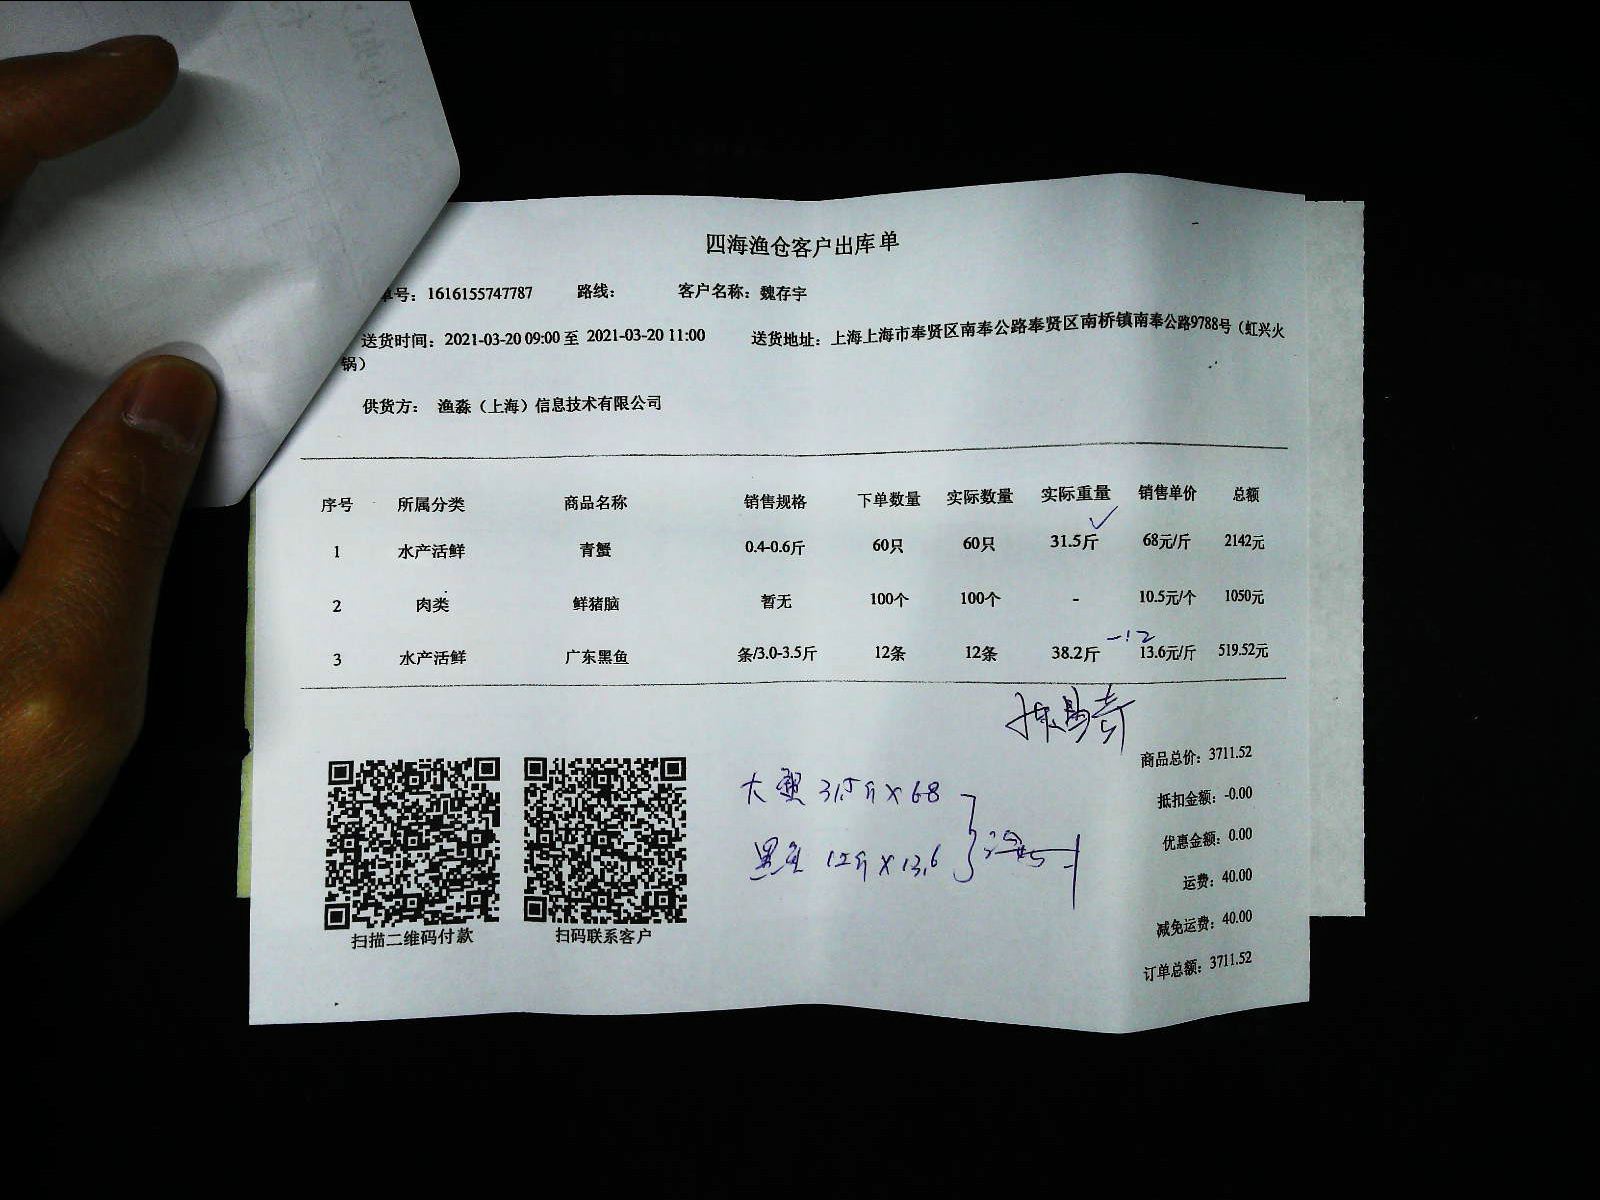 四海渔仓客户出库单
单号：1616155747787 路线： 客户名称：魏存宇
送货时间：2021-03-20 09:00 至 2021-03-20 11:00 送货地址：上海上海市奉贤区南奉公路奉贤区南桥镇南奉公路9788号（虹兴火
锅）
供货方： 渔淼（上海）信息技术有限公司
序号 所属分类 商品名称 销售规格 下单数量 实际数量 实际重量 销售单价 总额
1 水产活鲜 青蟹 0.4-0.6斤 60只 60只 31.5斤 68元/斤 2142元
2 肉类 鲜猪脑 暂无 100个 100个 - 10.5元/个 1050元
-12
3 水产活鲜 广东黑鱼 条/3.0-3.5斤 12条 12条 38.2斤 13.6元/斤 519.52元
大蟹 31.5斤×68
黑鱼 12斤×13.6
商品总价：3711.52
抵扣金额：-0.00
优惠金额：0.00
运费：40.00
减免运费：40.00
订单总额：3711.52
扫描二维码付款 扫码联系客户